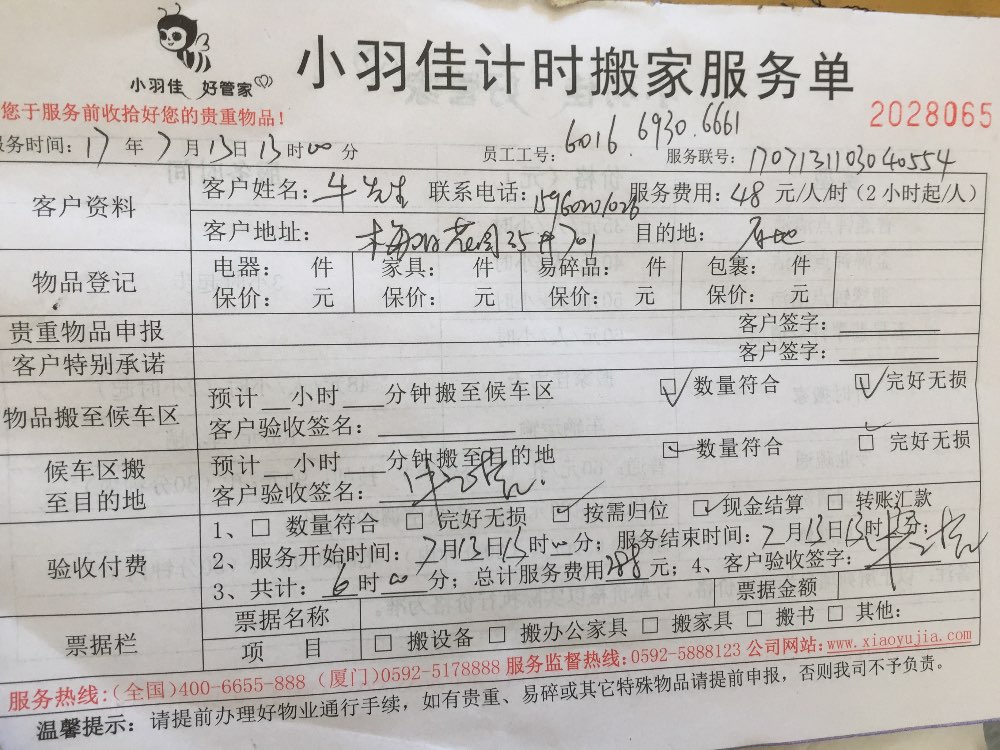 小羽佳 好管家
小羽佳计时搬家服务单
您于服务前收拾好您的贵重物品！
2028065
服务时间：17年7月13日13时00分 员工工号：6016 6930.6661 服务联号：170713110304 0554
客户资料
客户姓名：牛先生 联系电话：15960201026 服务费用：48元/人/时（2小时起/人）
客户地址：花园35#701 目的地：
物品登记
电器： 件 家具： 件 易碎品： 件 包裹： 件
保价： 元 保价： 元 保价： 元 保价： 元
贵重物品申报 客户签字：
客户特别承诺 客户签字：
物品搬至候车区
预计 小时 分钟搬至候车区 数量符合 完好无损
客户验收签名：
候车区搬至目的地
预计 小时 分钟搬至目的地 数量符合 完好无损
客户验收签名：
验收付费
1、□ 数量符合 □ 完好无损 按需归位 现金结算 □ 转账汇款
2、服务开始时间：7月13日13时00分；服务结束时间：7月13日13时 分；
3、共计：6时00分；总计服务费用288元；4、客户验收签字：
票据栏
票据名称 票据金额
项 目 □ 搬设备 □ 搬办公家具 □ 搬家具 □ 搬书 □ 其他：
服务热线：(全国)400-6655-888 (厦门)0592-5178888 服务监督热线：0592-5888123 公司网站：www.xiaoyujia.com
温馨提示：请提前办理好物业通行手续，如有贵重、易碎或其它特殊物品请提前申报，否则我司不予负责。